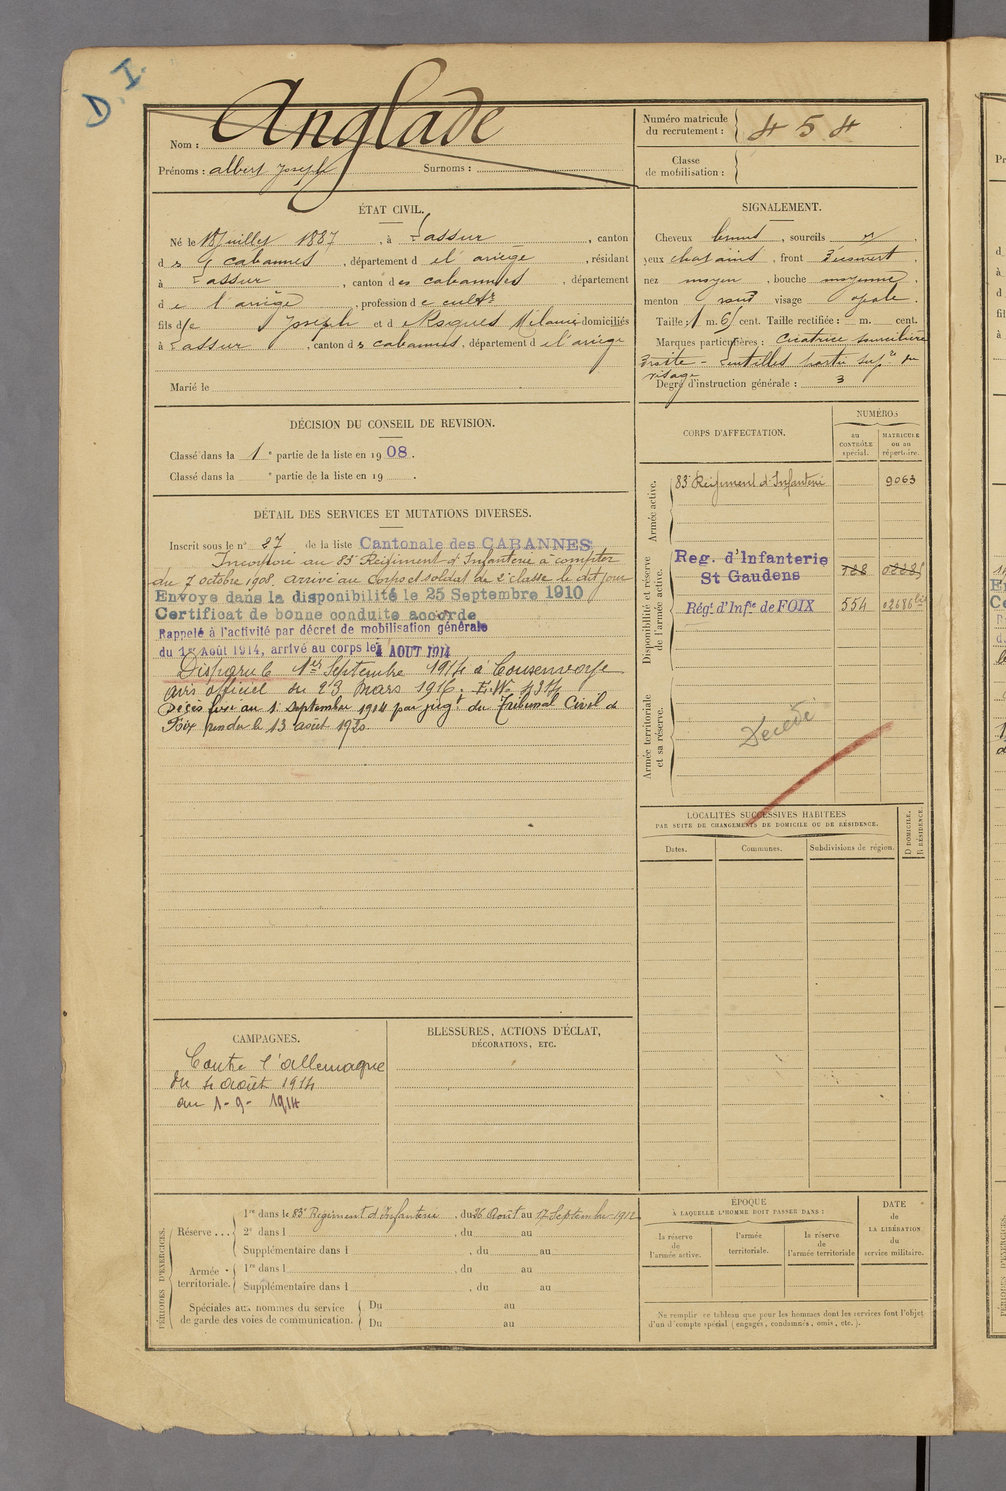 D. I.
Nom : Anglade
Prénoms : albert Joseph Surnoms :
Numéro matricule du recrutement : 454
Classe de mobilisation :
ÉTAT CIVIL.
Né le 18 juillet 1887, à Lassur, canton
d es Cabannes, département d e l'ariège, résidant
à Lassur, canton d es cabannes, département
d e l'ariège, profession d e cultr
fils d e Joseph et d e Roques Mélanie domiciliés
à Lassur, canton d es cabannes, département d e l'ariège
Marié le
SIGNALEMENT.
Cheveux bruns, sourcils
yeux chatains, front
nez moyen, bouche moyenne
menton rond visage ovale.
Taille : 1 m. 65 cent. Taille rectifiée : m. cent.
Marques particulières : Cicatrice sourcilière
droite - Lentilles partie supre du
visage
Degré d'instruction générale : 3
DÉCISION DU CONSEIL DE REVISION.
Classé dans la 1e partie de la liste en 1908.
Classé dans la e partie de la liste en 19 .
DÉTAIL DES SERVICES ET MUTATIONS DIVERSES.
Inscrit sous le n° 27 de la liste Cantonale des CABANNES
Incorporé au 83e Régiment d'Infanterie à compter
du 7 octobre 1908. arrivé au Corps et soldat de 2e classe le dit jour
Envoyé dans la disponibilité le 25 Septembre 1910
Certificat de bonne conduite accordé
Rappelé à l'activité par décret de mobilisation générale
du 1er Août 1914, arrivé au corps le 4 AOUT 1914
Disparu le 1er Septembre 1914 à Consenvoye
avis officiel du 23 mars 1916.
Décès fixé au 1. Septembre 1914 par jugt du Tribunal Civil de
Foix rendu le 13 août 1920.
CORPS D'AFFECTATION.
NUMÉROS
au contrôle spécial.
matricule ou au répertoire.
Armée active.
83e Régiment d'Infanterie 9063
Disponibilité et réserve de l'armée active.
Reg. d'Infanterie
St Gaudens
Régt d'Infie de FOIX 554
Armée territoriale et sa réserve.
Décédé
LOCALITÉS SUCCESSIVES HABITÉES
PAR SUITE DE CHANGEMENTS DE DOMICILE OU DE RÉSIDENCE.
Dates. Communes. Subdivisions de région.
D DOMICILE.
R RÉSIDENCE.
CAMPAGNES.
Contre l'allemagne
du 4 août 1914
au 1-9-1914
BLESSURES, ACTIONS D'ÉCLAT,
DÉCORATIONS, ETC.
PÉRIODES D'EXERCICES.
Réserve ...
1re dans le 83e Régiment d'Infanterie, du 26 Août au 17 Septembre 1912
2e dans l , du au
Supplémentaire dans l , du au
Armée territoriale.
1re dans l , du au
Supplémentaire dans l , du au
Spéciales aux nommes du service
de garde des voies de communication.
Du au
Du au
ÉPOQUE
À LAQUELLE L'HOMME DOIT PASSER DANS :
la réserve de l'armée active.
l'armée territoriale.
la réserve de l'armée territoriale
DATE
de
LA LIBÉRATION
du
service militaire.
Ne remplir ce tableau que pour les hommes dont les services font l'objet
d'un décompte spécial (engagés, condamnés, omis, etc.).